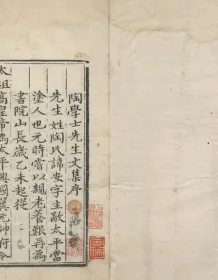 陶學士先生文集序
先生姓陶氏諱安字主敬太平當
塗人也元時嘗以親老養親再爲
書院山長歲乙未起從
太祖高皇帝爲太平興國翼元帥府令